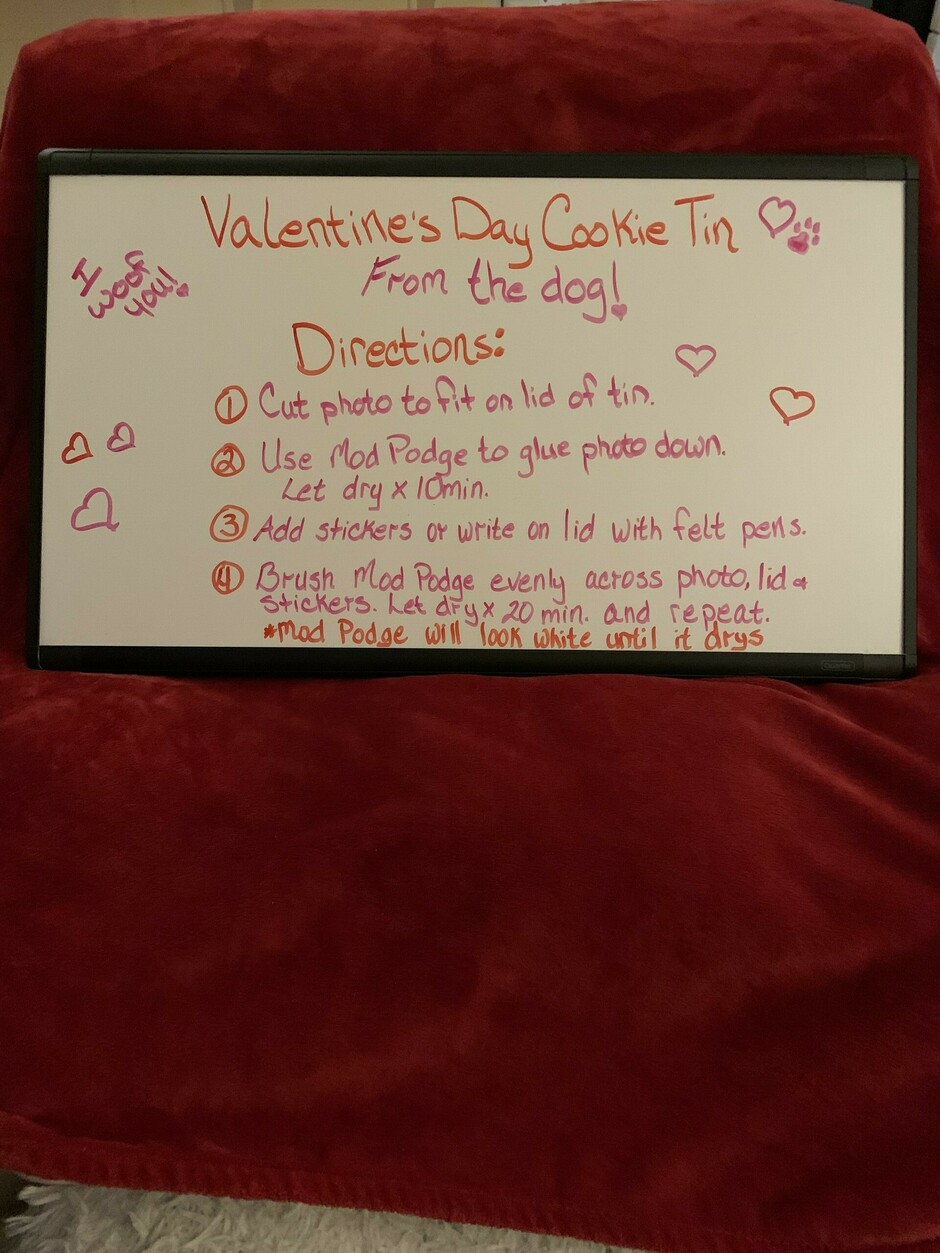 Valentine's Day Cookie Tin
From the dog!
I
woof
you!
Directions:
1 Cut photo to fit on lid of tin.
2 Use Mod Podge to glue photo down.
Let dry x 10min.
3 Add stickers or write on lid with felt pens.
4 Brush Mod Podge evenly across photo, lid &
stickers. Let dry x 20 min. and repeat.
*Mod Podge will look white until it drys